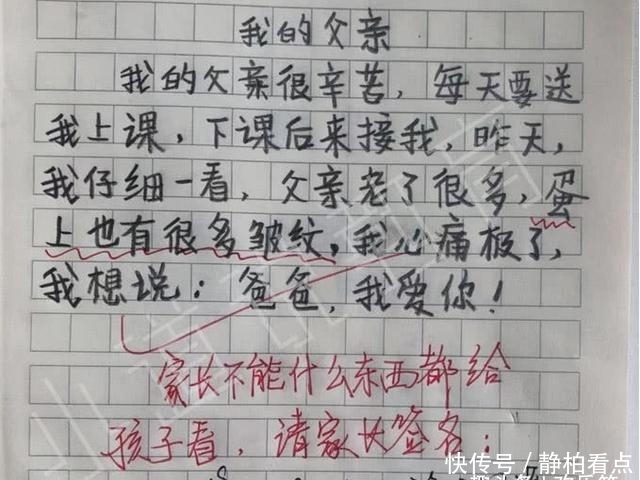 我的父亲
我的父亲很辛苦，每天要送
我上课，下课后来接我，昨天，
我仔细一看，父亲老了很多，蛋
上也有很多皱纹，我心痛极了，
我想说：爸爸，我爱你！
家长不能什么东西都给
孩子看，请家长签名：
快传号／静柏看点